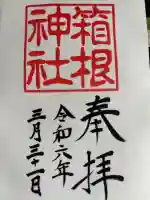 奉拝
箱根
神社
令和六年
三月三十一日